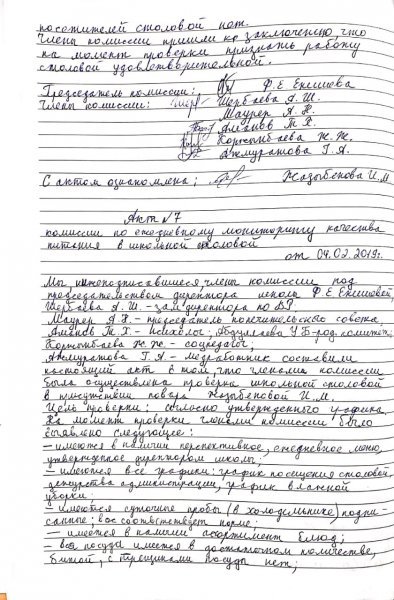 посетителей столовой нет.
Члены комиссии пришли к заключению, что
на момент проверки признать работу
столовой удовлетворительной.
Председатель комиссии: Ф.Е. Енсшева
Члены комиссии: Щербаева А.Ш.
Маурер А.Я.
Аманов Т.Х.
Коржынбаева Ж.Ж.
Джмуратова Г.А.
С актом ознакомлена: Жазыбекова И.М
Акт №7
комиссии по ежедневному мониторингу качества
питания в школьной столовой
от 04.02.2019г.
Мы, нижеподписавшиеся, члены комиссии под
председательством директора школы Ф.Е. Енсшевой,
Щербаева А.Ш. - зам.директора по ВР
Маурер А.Я. - председатель попечительского совета,
Аманов Т.Х. - психолог, Абдуллаева У.Б - род.комитет,
Коржынбаева Ж.Ж. - соцпедагог,
Джмуратова Г.А - медработник составили
настоящий акт о том, что членами комиссии
была осуществлена проверка школьной столовой
в присутствии повара Жазыбековой И.М.
Цель проверки: согласно утвержденного графика
На момент проверки членами комиссии было
выявлено следующее:
- имеются в наличии перспективное, ежедневное меню,
утвержденное директором школы;
- имеются все графики: график посещения столовой,
дежурства администрации, график влажной
уборки;
- имеются суточные пробы (в холодильнике) подпи-
санные; вес соответствует норме;
- имеется в наличии ассортимент блюд;
- вся посуда имеется в достаточном количестве,
битой, с трещинами посуды нет;